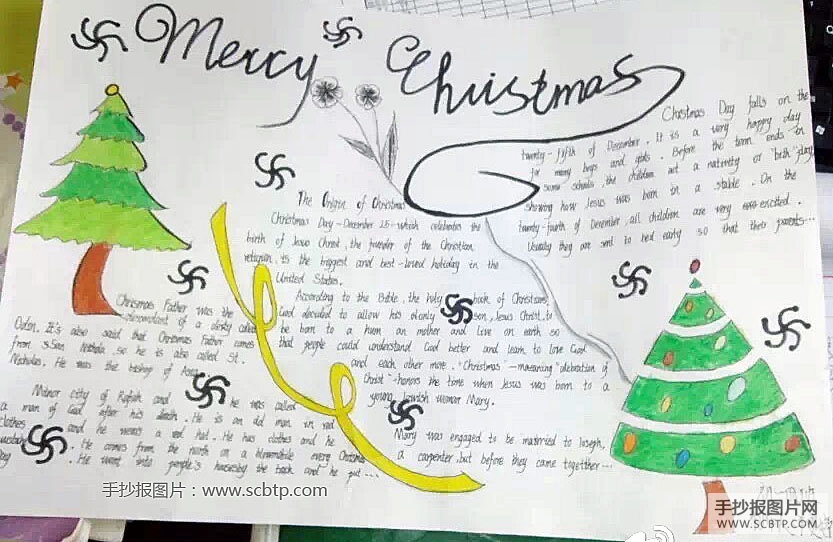 Merry Christmas
Christmas Day falls on the
twenty-fifth of December. It is a very happy day
for many boys and girls. Before the term ends in
some schools, the children act a nativity or "birth" play
showing how Jesus was born in a stable. On the
twenty-fourth of December, all children are very excited.
Usually they are sent to bed early so that their parents...
The Origin of Christmas
Christmas Day-December 25-which celebrates the
birth of Jesus Christ, the founder of the Christian
religion, is the biggest and best-loved holiday in the
United States.
According to the Bible, the holy book of Christians,
God decided to allow his only son, Jesus Christ, to
be born to a human mother and live on earth so
that people could understand God better and learn to love God
and each other more. "Christmas"-meaning" celebration of
Christ"-honors the time when Jesus was born to a
young Jewish woman Mary.
Mary was engaged to be married to Joseph,
a carpenter, but before they came together...
Christmas Father was the
descendant of a deity called
Odin. It's also said that Christmas Father comes
from San Nichola, so he is also called St.
Nicholas. He was the bishop of Asia
Minor city of and he was called
a man of God after his death. He is an old man in red
clothes and he wears a red hat. He has clothes and he
. He comes from the north on a every Christmas
. He went into people's houses by the back and he put...
手抄报图片：www.scbtp.com
手抄报图片网
WWW.SCBTP.COM